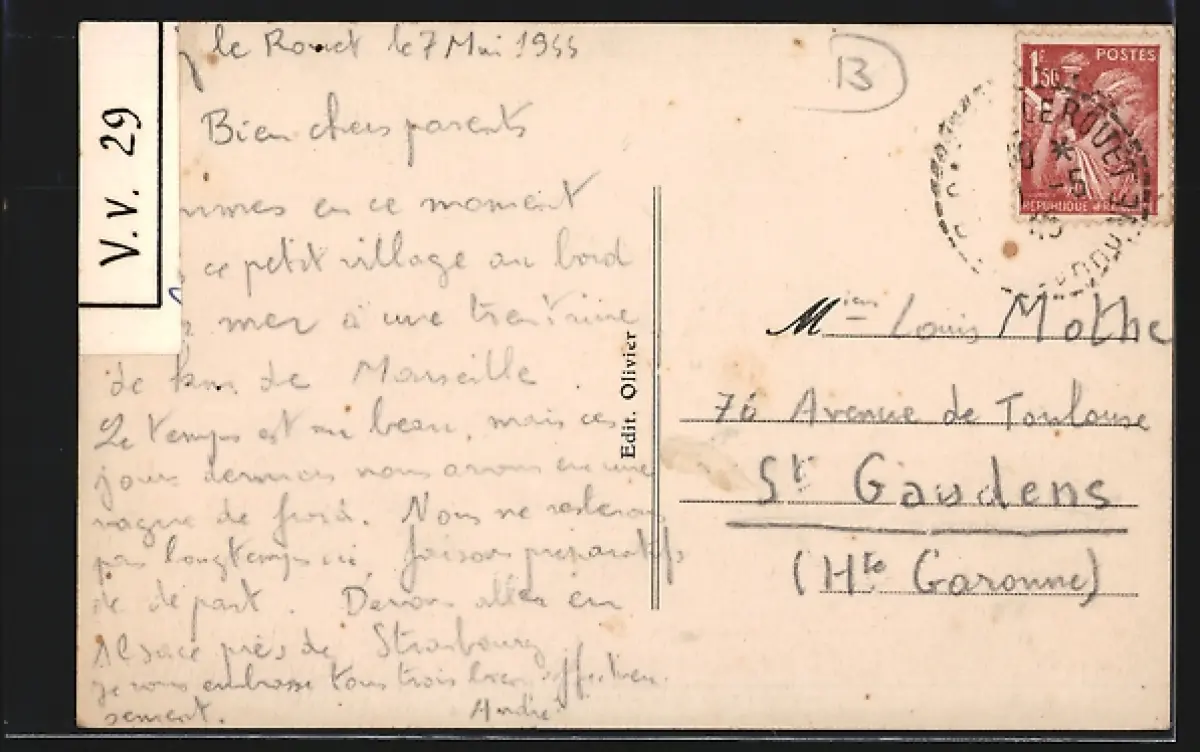 V.V. 29
le Rouet le 7 Mai 1945
Bien chers parents
mmes en ce moment
ce petit village au bord
mer à une trentaine
de km de Marseille.
Le temps est au beau, mais ces
jours derniers nous avons eu une
vague de froid. Nous ne resterons
pas longtemps ici, faisons préparatifs
de départ. Devons aller en
Alsace près de Strasbourg
Je vous embrasse tous trois bien affectueu
sement.
André
Edit. Olivier
B
1F
50
POSTES
REPUBLIQUE FRANÇAISE
LE ROUET
-5
45
Louis Mothe
76 Avenue de Toulouse
St Gaudens
(Hte Garonne)